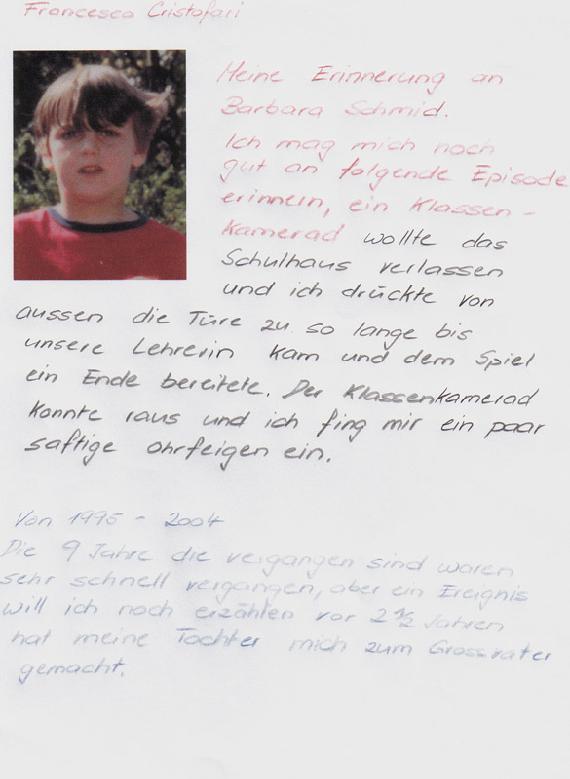 Francesco Cristofari
Meine Erinnerung an
Barbara Schmid.
Ich mag mich noch
gut an folgende Episode
erinnern, ein Klassen-
kamerad wollte das
Schulhaus verlassen
und ich drückte von
aussen die Türe zu. so lange bis
unsere Lehrerin kam und dem Spiel
ein Ende bereitete. Der Klassenkamerad
konnte raus und ich fing mir ein paar
saftige Ohrfeigen ein.
Von 1995 - 2004
Die 9 Jahre die vergangen sind waren
sehr schnell vergangen, aber ein Ereignis
will ich noch erzählen vor 2 1/2 Jahren
hat meine Tochter mich zum Grossvater
gemacht.